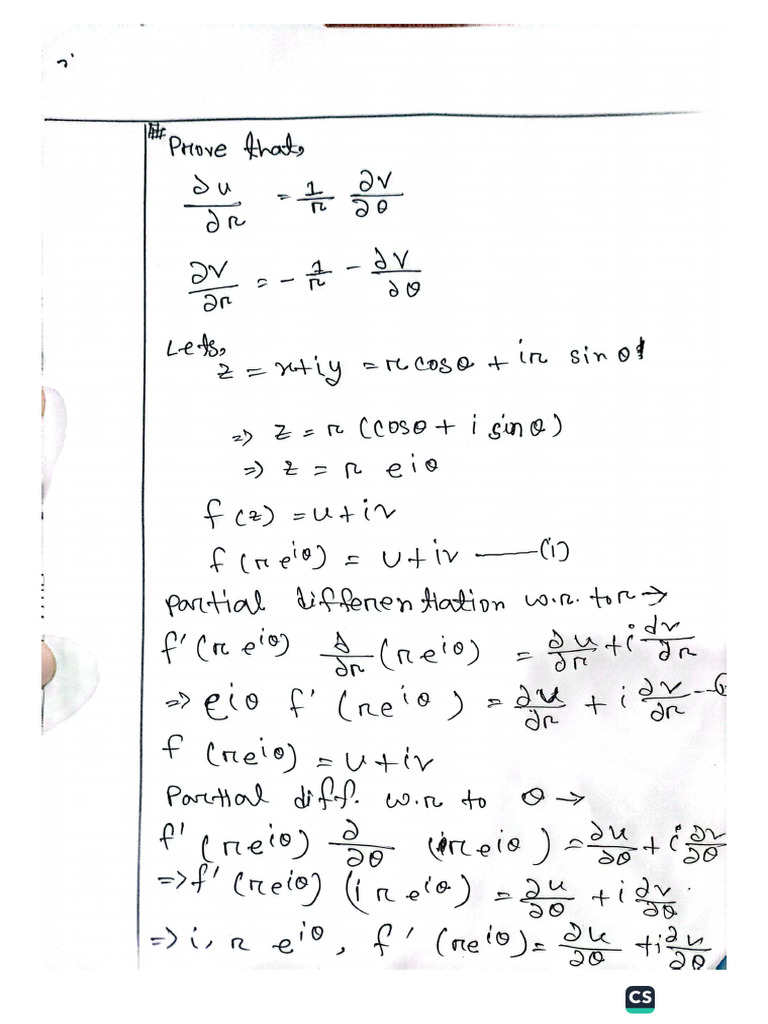 ## Prove that,
∂u/∂r = 1/r ∂v/∂θ
∂v/∂r = - 1/r - ∂v/∂θ
Lets,
z = x+iy = r cosθ + ir sinθ
=> z = r (cosθ + i sinθ)
=> z = r e^iθ
f(z) = u+iv
f(r e^iθ) = u+iv ——— (1)
Partial differentiation w.r. to r →
f'(r e^iθ) ∂/∂r (r e^iθ) = ∂u/∂r + i ∂v/∂r
=> e^iθ f' (r e^iθ) = ∂u/∂r + i ∂v/∂r
f (r e^iθ) = u+iv
Partial diff. w.r to θ →
f' (r e^iθ) ∂/∂θ (r e^iθ) = ∂u/∂θ + i ∂v/∂θ
=> f' (r e^iθ) (i r e^iθ) = ∂u/∂θ + i ∂v/∂θ
=> i, r e^iθ, f' (r e^iθ) = ∂u/∂θ + i ∂v/∂θ
CS